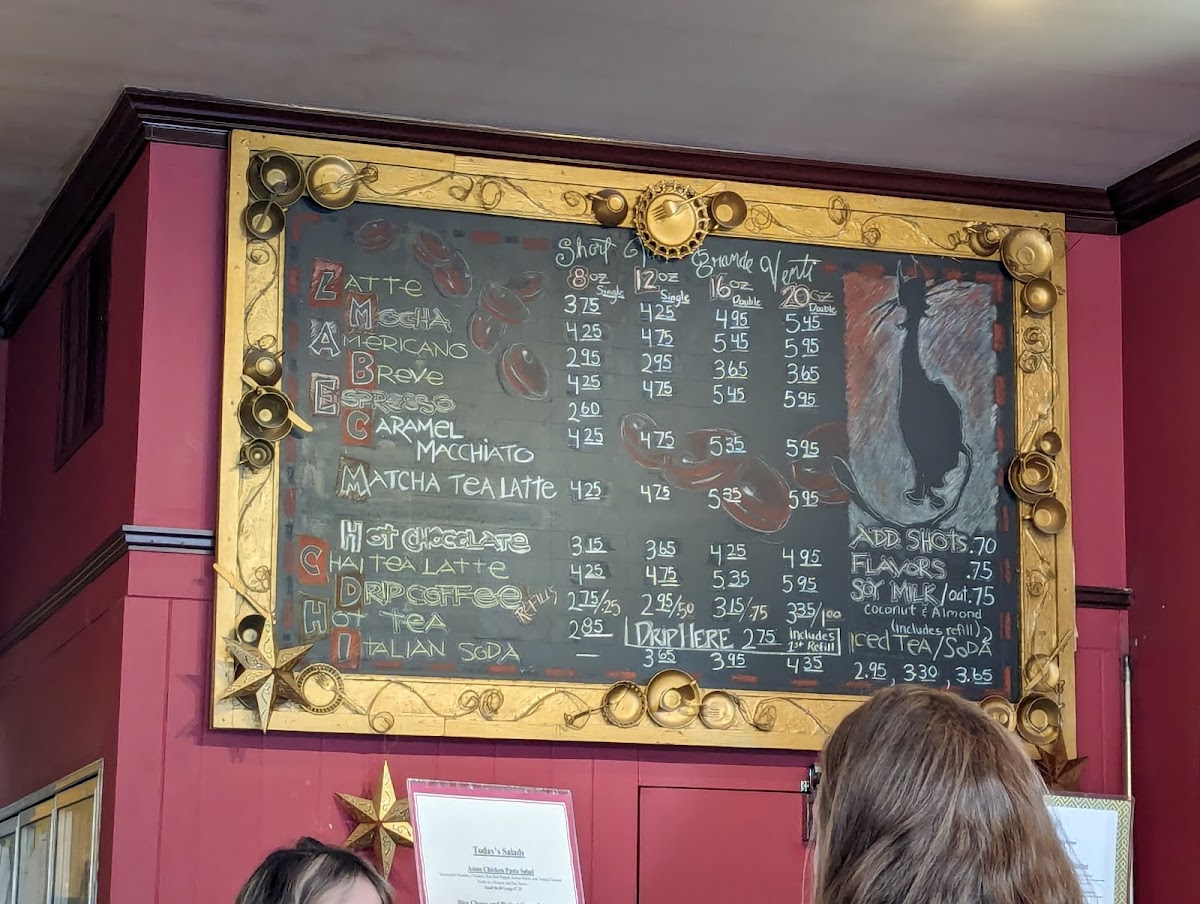 Short Grande Venti
8oz Single 12oz Single 16oz Double 20oz Double
LATTE 3.75 4.25 4.95 5.45
MOCHA 4.25 4.75 5.45 5.95
AMERICANO 2.95 2.95 3.65 3.65
BREVE 4.25 4.75 5.45 5.95
ESPRESSO 2.60
CARAMEL
MACCHIATO 4.25 4.75 5.35 5.95
MATCHA TEA LATTE 4.25 4.75 5.35 5.95
HOT CHOCOLATE 3.15 3.65 4.25 4.95
CHAI TEA LATTE 4.25 4.75 5.35 5.95
DRIP COFFEE REFILLS 2.75/.25 2.95/.50 3.15/.75 3.35/1.00
HOT TEA 2.85 DRIP HERE 2.75 includes 1st Refill
ITALIAN SODA — 3.65 3.95 4.35
ADD SHOTS .70
FLAVORS .75
SOY MILK/oat .75
coconut & Almond
(includes refill)
ICED TEA/SODA
2.95, 3.30, 3.65
Today's Salads
Asian Chicken Pasta Salad